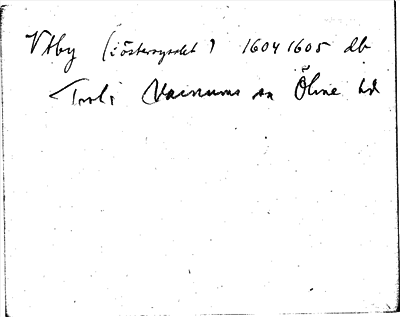 Vtby (i östersysslet) 1604 1605 db
Trol i Varnums sn Ölme hd